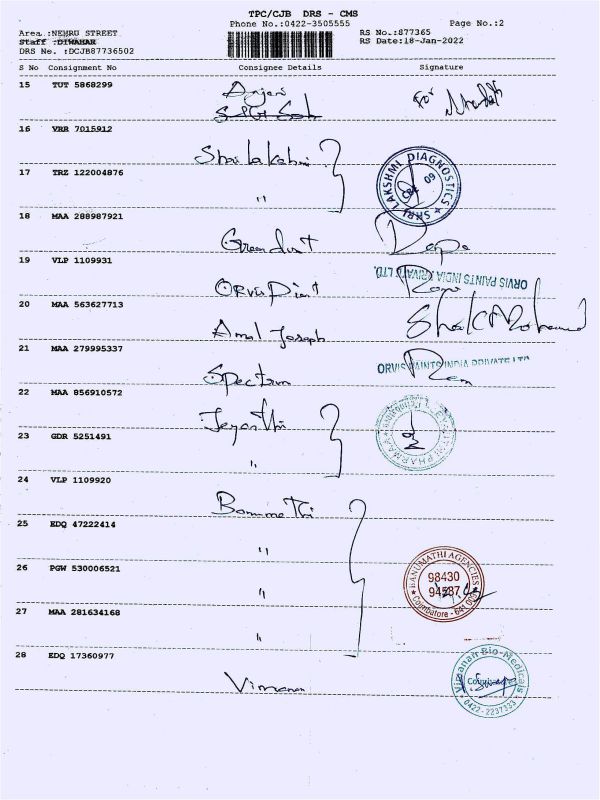 TPC/CJB DRS - CMS
Phone No.:0422-3505555 Page No.:2
Area :NEHRU STREET RS No.:877365
Staff :DIWAHAR RS Date:18-Jan-2022
DRS No. :DCJB87736502
S No Consignment No Consignee Details Signature
15 TUT 5868299 Anjani
For
16 VRR 7015912
Shri Lakshmi
17 TRZ 122004876
"
SHRI LAKSHMI DIAGNOSTICS
CBE 09
18 MAA 288987921
19 VLP 1109931
ORVIS PAINTS INDIA PRIVATE LTD.
Orvis Paint
20 MAA 563627713
Amal Joseph
21 MAA 279995337
ORVIS PAINTS INDIA PRIVATE LTD
Spectrum Ram
22 MAA 856910572
Jeyanthi
23 GDR 5251491
"
24 VLP 1109920
25 EDQ 47222414
"
26 PGW 530006521
"
BANUMATHI AGENCIES
98430
94587
Coimbatore - 641 0
27 MAA 281634168
"
28 EDQ 17360977
Vimanan
Vimanan Bio-Medicals
0422 - 2237333